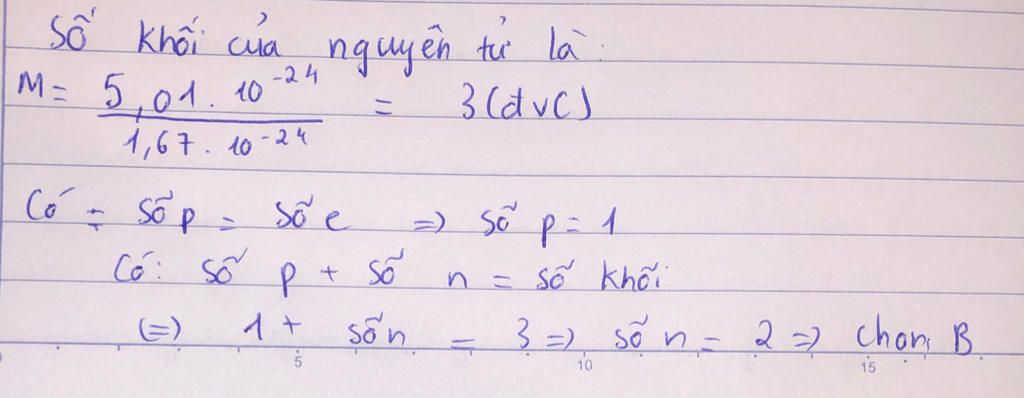 Số khối của nguyên tử là:
M = 5,01 . 10^-24 / 1,67 . 10^-24 = 3 (đvC)
Có: Số p = Số e => Số p = 1
Có: Số p + Số n = số khối
(=) 1 + số n = 3 => số n = 2 => Chọn B.
5 10 15